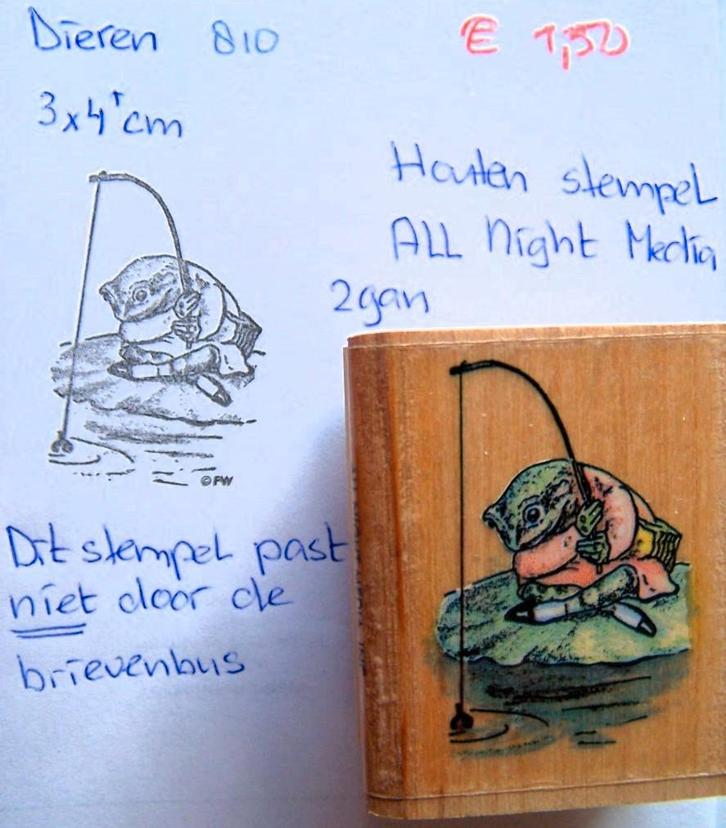 Dieren 810
€ 1,50
3x4 cm
Houten stempel
ALL Night Media
2gan
©FW
Dit stempel past
niet door de
brievenbus